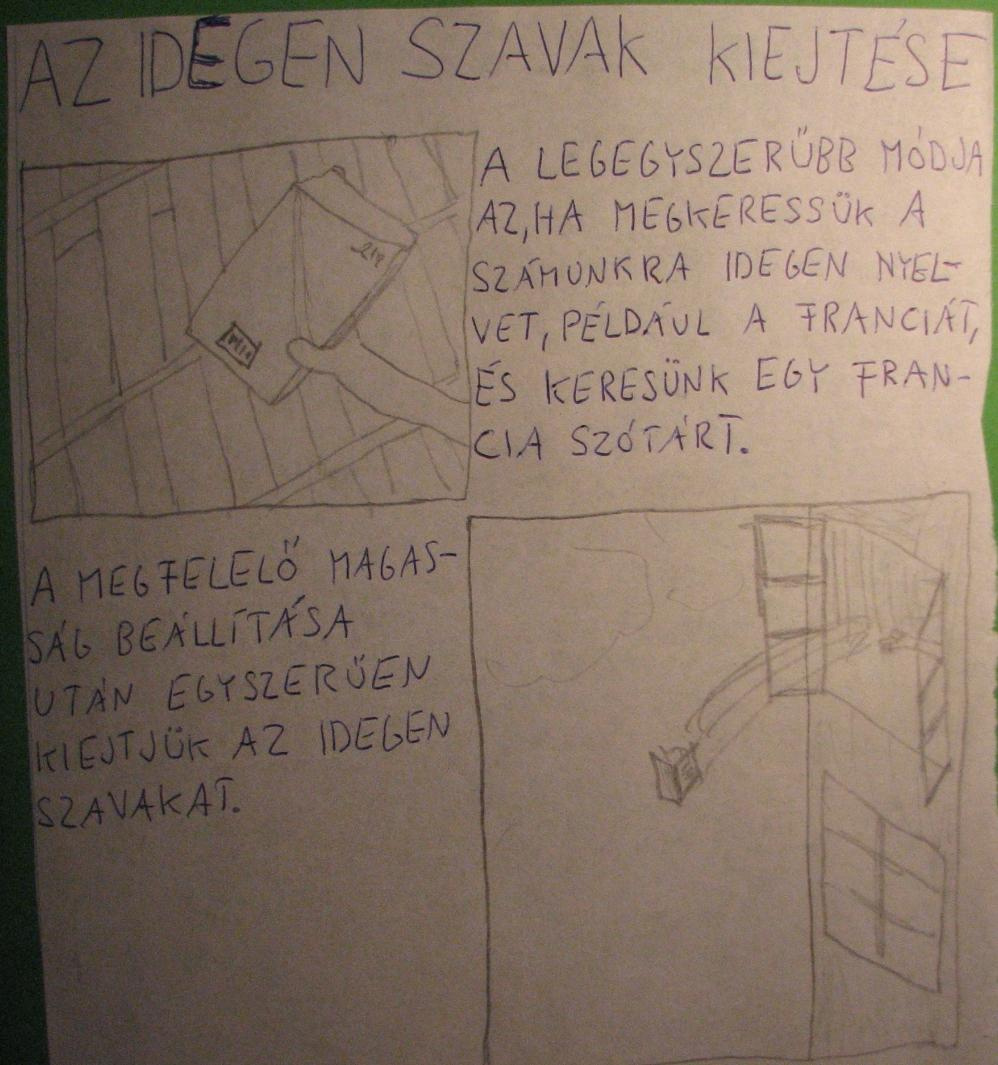 AZ IDEGEN SZAVAK KIEJTÉSE
A LEGEGYSZERŰBB MÓDJA
AZ, HA MEGKERESSÜK A
SZÁMUNKRA IDEGEN NYEL-
VET, PÉLDÁUL A FRANCIÁT,
ÉS KERESÜNK EGY FRAN-
CIA SZÓTÁRT.
A MEGFELELŐ MAGAS-
SÁG BEÁLLÍTÁSA
UTÁN EGYSZERŰEN
KIEJTJÜK AZ IDEGEN
SZAVAKAT.